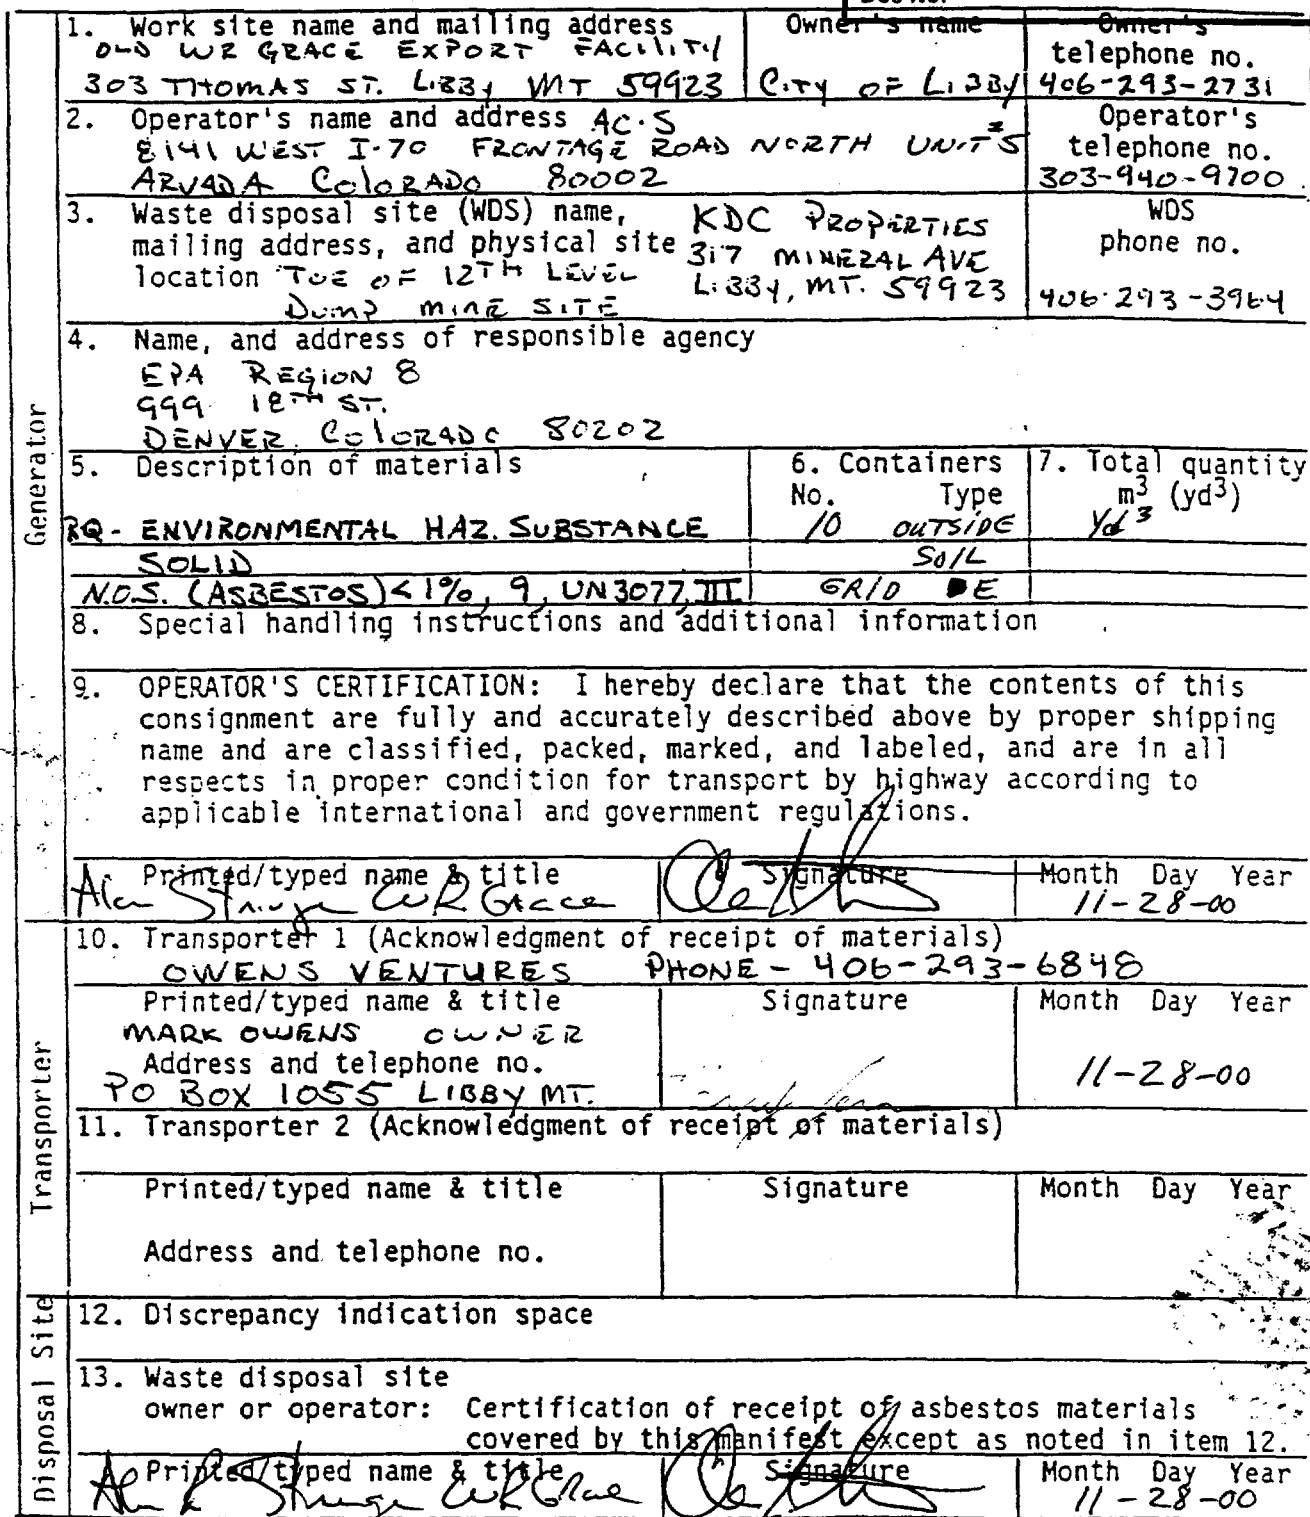 1. Work site name and mailing address
OLD WR GRACE EXPORT FACILITY
303 THOMAS ST. LIBBY MT 59923
Owner's name
CITY OF LIBBY
Owner's telephone no.
406-293-2731
2. Operator's name and address AC·S
8141 WEST I-70 FRONTAGE ROAD NORTH UNIT #5
ARVADA COLORADO 80002
Operator's
telephone no.
303-940-9700
3. Waste disposal site (WDS) name,
mailing address, and physical site
location TOE OF 12TH LEVEL
DUMP MINE SITE
KDC PROPERTIES
317 MINERAL AVE
LIBBY, MT. 59923
WDS
phone no.
406-293-3964
Generator
4. Name, and address of responsible agency
EPA REGION 8
999 18TH ST.
DENVER COLORADO 80202
5. Description of materials
6. Containers
No. Type
7. Total quantity
m3 (yd3)
RQ- ENVIRONMENTAL HAZ. SUBSTANCE
10 OUTSIDE
Yd3
SOLID
SOIL
N.O.S. (ASBESTOS) <1%, 9, UN3077, III
GRID E
8. Special handling instructions and additional information
9. OPERATOR'S CERTIFICATION: I hereby declare that the contents of this
consignment are fully and accurately described above by proper shipping
name and are classified, packed, marked, and labeled, and are in all
respects in proper condition for transport by highway according to
applicable international and government regulations.
Printed/typed name & title
Signature
Month Day Year
Alan Stringer WR Grace
11-28-00
Transporter
10. Transporter 1 (Acknowledgment of receipt of materials)
OWENS VENTURES PHONE - 406-293-6848
Printed/typed name & title
Signature
Month Day Year
MARK OWENS OWNER
Address and telephone no.
PO BOX 1055 LIBBY MT.
11-28-00
11. Transporter 2 (Acknowledgment of receipt of materials)
Printed/typed name & title
Signature
Month Day Year
Address and telephone no.
Disposal Site
12. Discrepancy indication space
13. Waste disposal site
owner or operator: Certification of receipt of asbestos materials
covered by this manifest except as noted in item 12.
Printed/typed name & title
Signature
Month Day Year
Alan R Stringer WR Grace
11-28-00